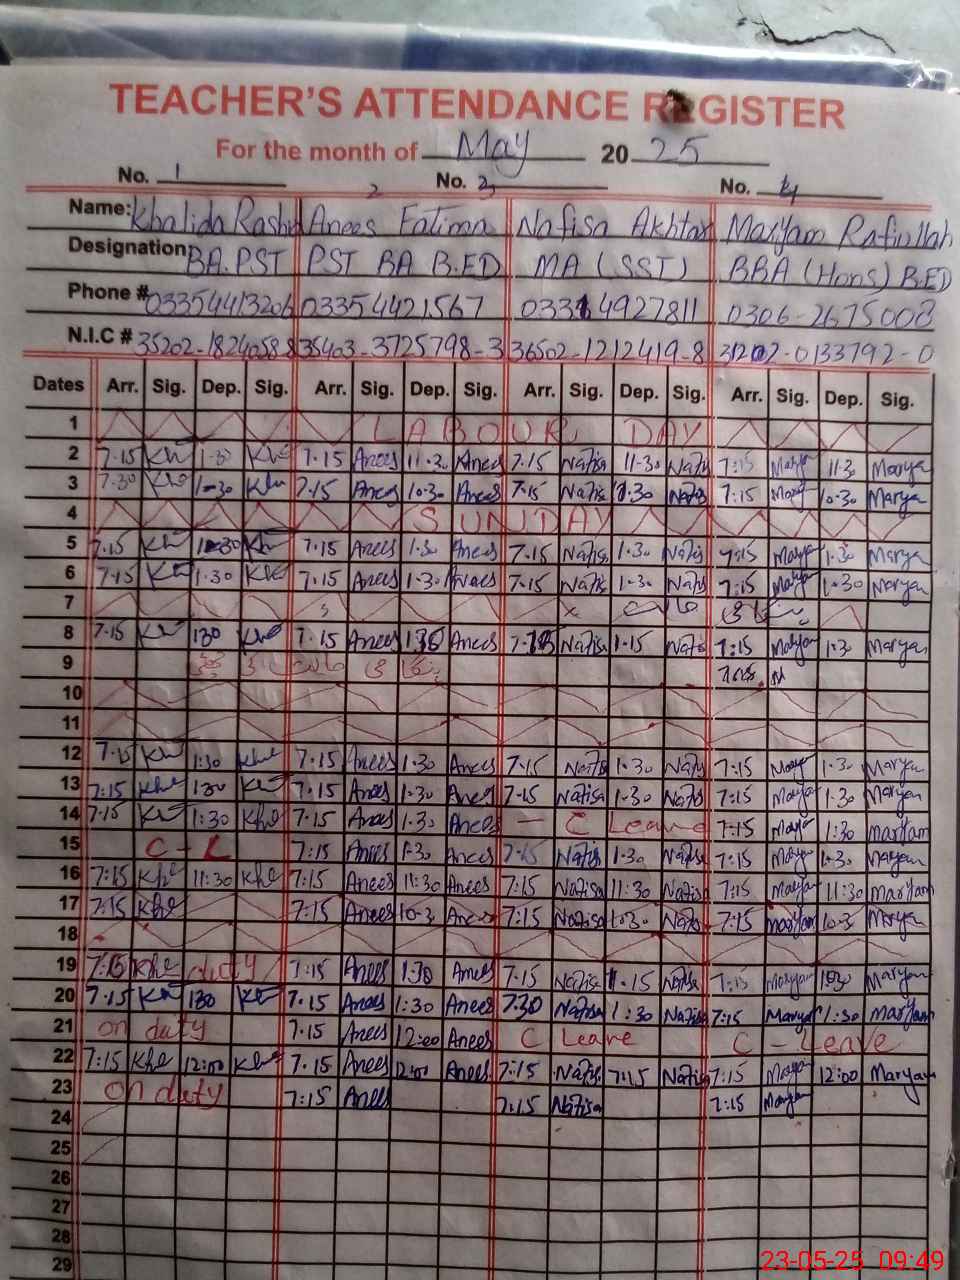 TEACHER'S ATTENDANCE REGISTER
For the month of May 2025
No. 1 2 No. 3 No. 4
Name: Khalida Rashid Anees Fatima Nafisa Akhtar Maryam Rafiullah
Designation: BA.PST PST BA B.ED MA (SST) BBA (Hons) B.ED
Phone # 03354413206 03354421567 0331 4927811 0306-2675008
N.I.C # 35202-1824058 8 35403-3725798-3 36502-1212419-8 31202-0133792-0
Dates Arr. Sig. Dep. Sig. Arr. Sig. Dep. Sig. Arr. Sig. Dep. Sig. Arr. Sig. Dep. Sig.
1 LABOUR DAY
2 7.15 Kh 1-30 Khe 7.15 Anees 11.30 Anees 7.15 Nafisa 11-30 Nafis 7:15 Marya 11.30 Marya
3 7.30 Khe 1-30 Khe 7.15 Anees 10.30 Anees 7.15 Nafisa 1.30 Nafis 7:15 Marya 10.30 Marya
4 SUNDAY
5 7.15 Kh 1-30 Kh 7.15 Anees 1.30 Anees 7.15 Nafisa 1.30 Nafis 7:15 Marya 1.30 Marya
6 7.15 Kh 1.30 Khe 7.15 Anees 1.30 Anees 7.15 Nafis 1-30 Nafis 7:15 Marya 1.30 Marya
7
8 7.15 Kh 130 Khe 7.15 Anees 1.30 Anees 7.15 Nafisa 1.15 Nafis 7:15 Maryam 1.3 Maryam
9
10
11
12 7.15 Kh 1:30 Khe 7.15 Anees 1.30 Anees 7.15 Nafis 1.30 Nafis 7:15 Marya 1.30 Maryam
13 7:15 Khe 130 Kh 7.15 Anees 1.30 Anees 7.15 Nafisa 1.30 Nafis 7:15 Marya 1.30 Maryam
14 7:15 Kh 1:30 Khe 7.15 Anees 1.30 Anees - C Leave 7:15 Marya 1:30 Maryam
15 C - L 7:15 Anees 1.30 Anees 7.15 Nafis 1.30 Nafisa 7:15 Marya 1.30 Maryam
16 7:15 Khe 11:30 Khe 7:15 Anees 11:30 Anees 7:15 Nafisa 11:30 Nafis 7:15 Marya 11:30 Maryam
17 7:15 Khe 7:15 Anees 10-3 Anees 7:15 Nafisa 10.30 Nafis 7:15 Maryam 10.3 Marya
18
19 7:15 Khe duty 7:15 Anees 1.30 Anees 7.15 Nafisa 1.15 Nafis 7:15 Maryam 1.30 Maryam
20 7.15 Kh 130 Kh 7.15 Anees 1:30 Anees 7.30 Nafisa 1:30 Nafisa 7:15 Marya 1:30 Maryam
21 on duty 7.15 Anees 12:00 Anees C Leave C - Leave
22 7:15 Khe 12:00 Khe 7.15 Anees 12:00 Anees 7:15 Nafis 7:15 Nafisa 7:15 Marya 12:00 Maryam
23 on duty 7:15 Anees 7:15 Nafisa 7:15 Maryam
24
25
26
27
28
29
23-05-25 09:49